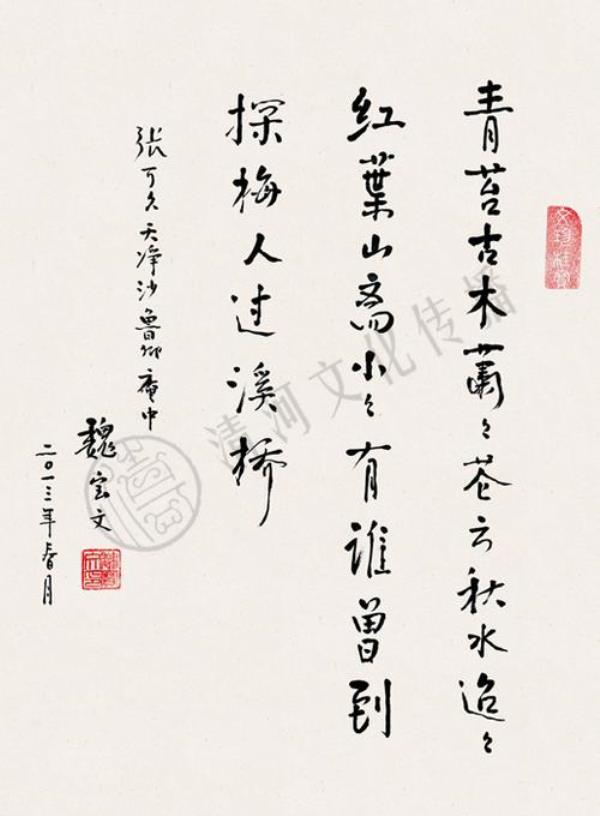 青苔古木萧々苍云秋水迢々
红葉山斋小々有谁曾到
探梅人过溪桥
张可久天净沙鲁卿庵中
魏文
二〇一三年春月
清河文化传播